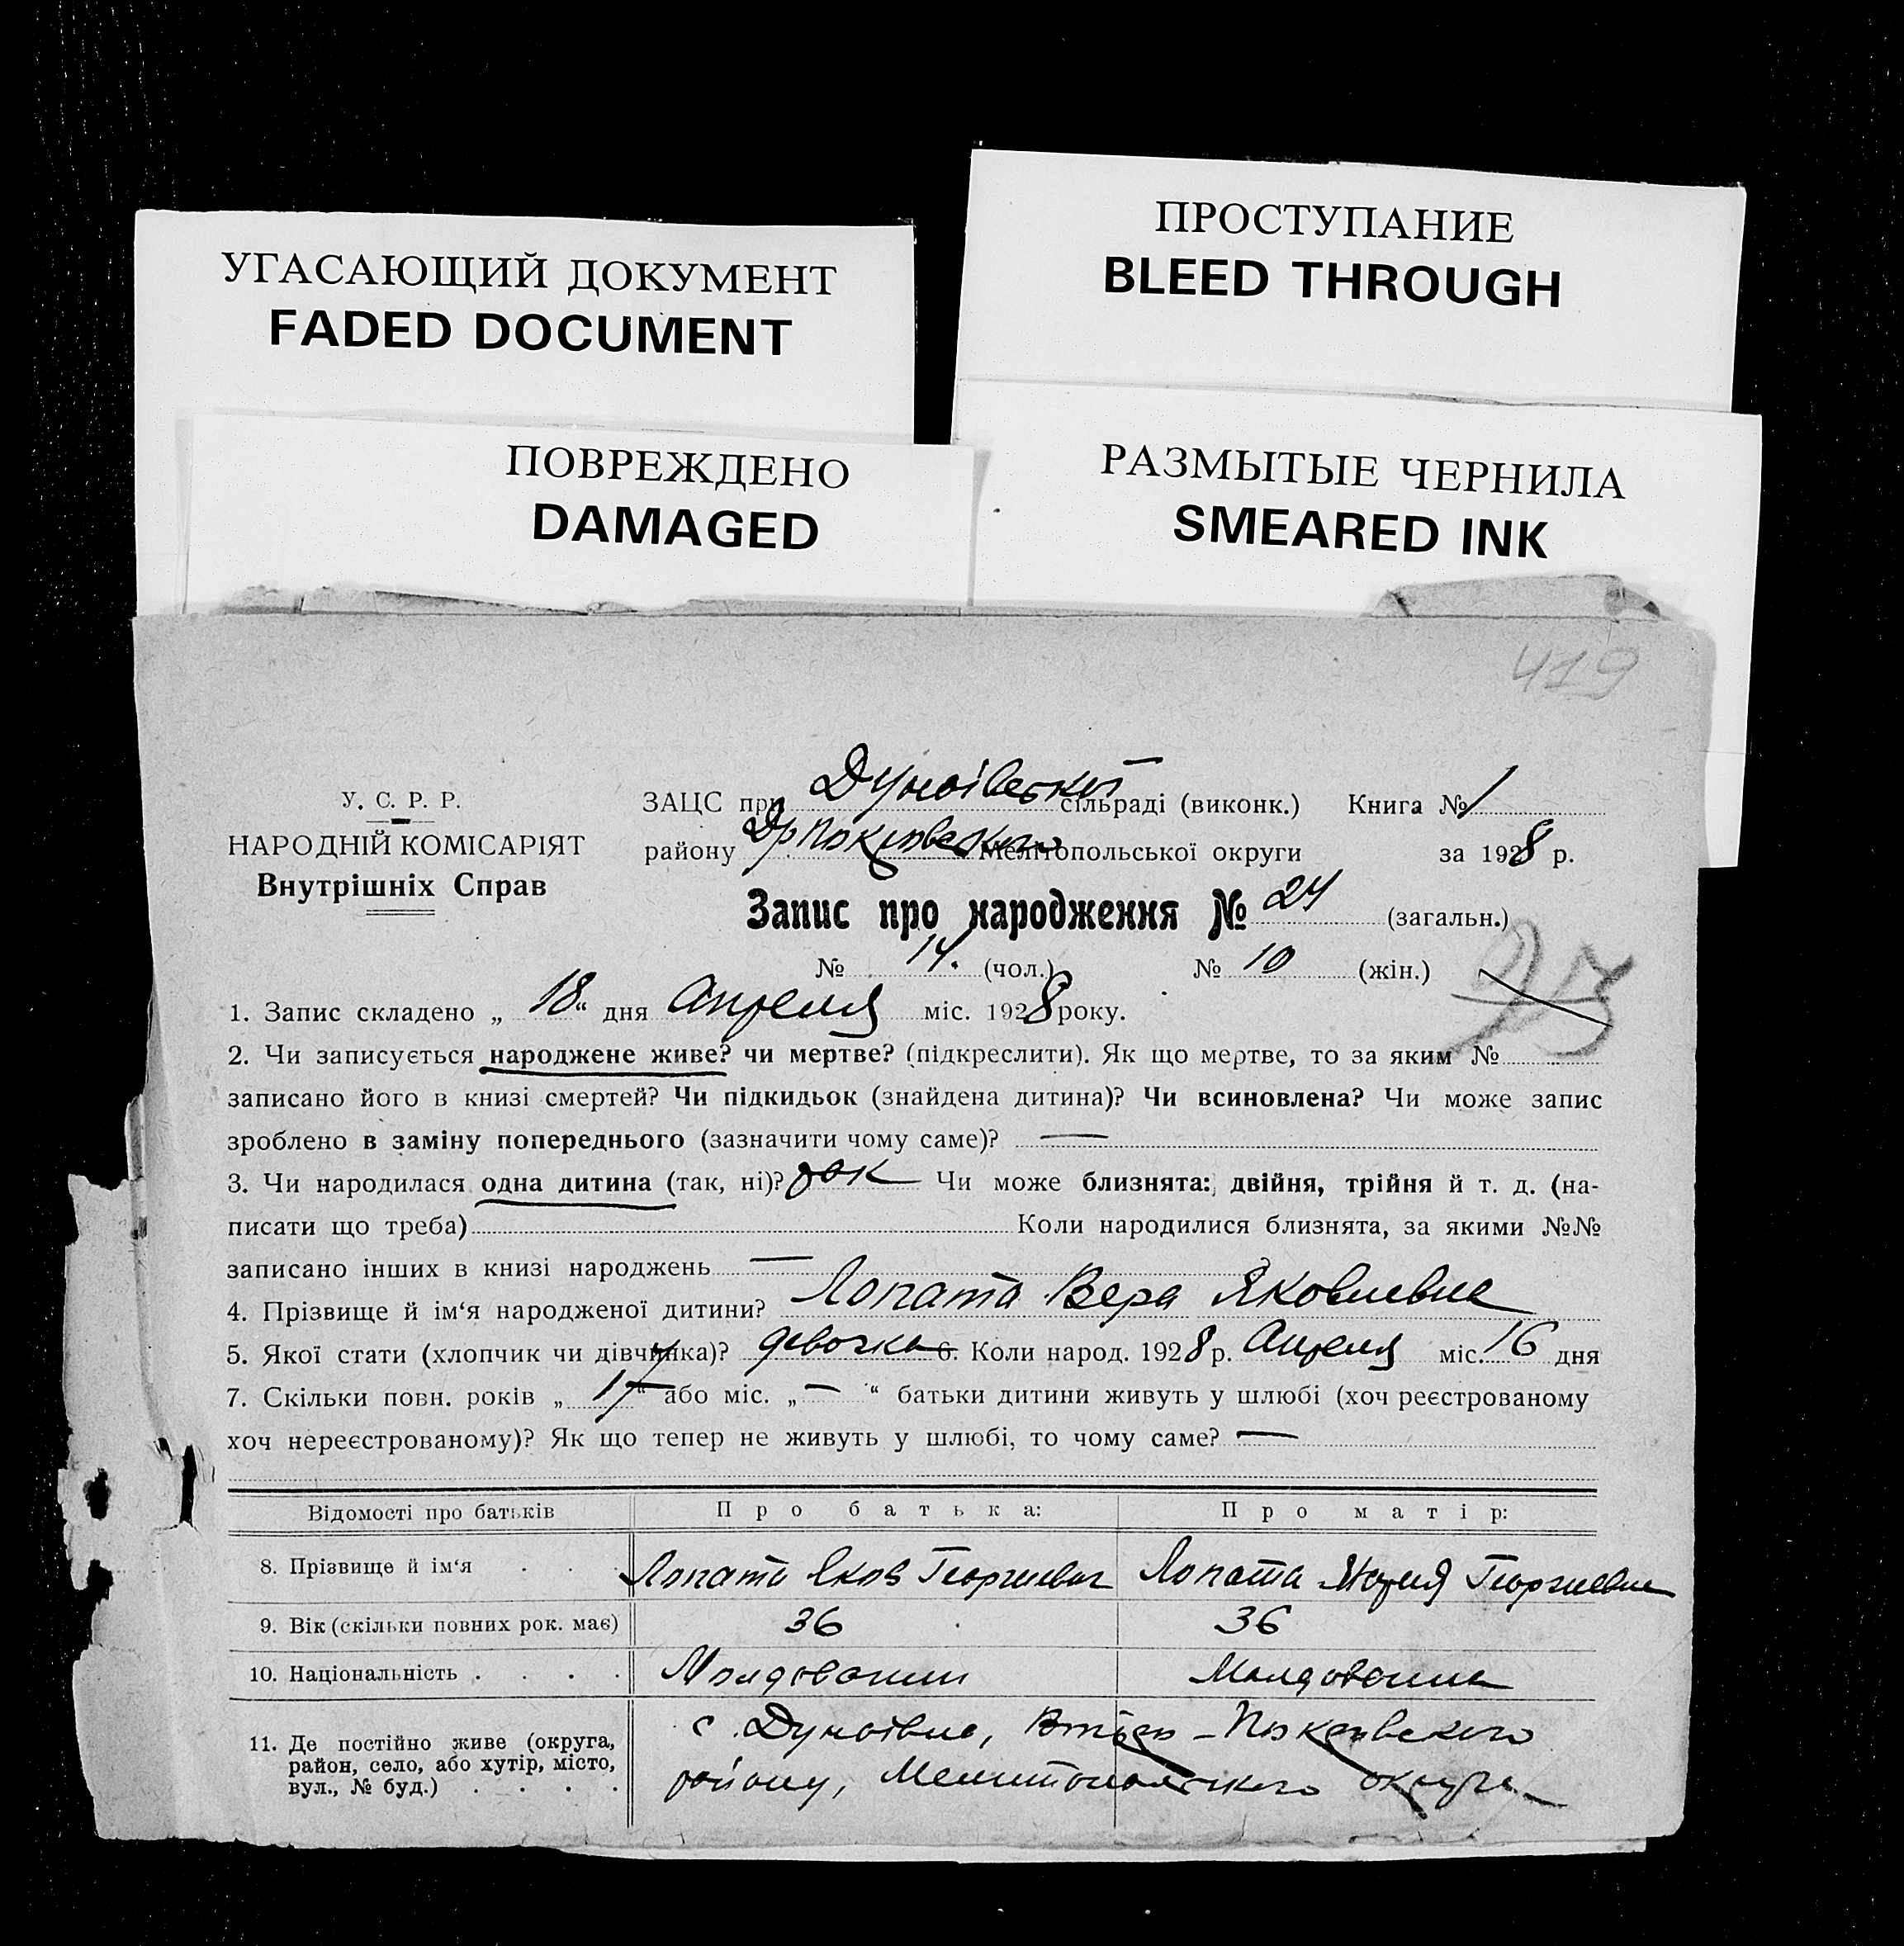 УГАСАЮЩИЙ ДОКУМЕНТ
FADED DOCUMENT
ПРОСТУПАНИЕ
BLEED THROUGH
ПОВРЕЖДЕНО
DAMAGED
РАЗМЫТЫЕ ЧЕРНИЛА
SMEARED INK
419
У. С. Р. Р.
НАРОДНІЙ КОМІСАРІЯТ
Внутрішніх Справ
ЗАЦС при Дунаївської сільраді (виконк.) Книга № 1
району Мелітопольської округи за 1928 р.
Запис про народження № 24 (загальн.)
№ 14. (чол.) № 10 (жін.)
1. Запис складено „ 18 “ дня Апреля міс. 1928 року.
2. Чи записується народжене живе? чи мертве? (підкреслити). Як що мертве, то за яким №
записано його в книзі смертей? Чи підкидьок (знайдена дитина)? Чи всиновлена? Чи може запис
зроблено в заміну попереднього (зазначити чому саме)? —
3. Чи народилася одна дитина (так, ні)? Чи може близнята: двійня, трійня й т. д. (на-
писати що треба) Коли народилися близнята, за якими №№
записано інших в книзі народжень —
4. Прізвище й ім‘я народженої дитини? Лопата Вера Яковлевна
5. Якої стати (хлопчик чи дівчинка)? девочка 6. Коли народ. 1928 р. Апреля міс. 16 дня
7. Скільки повн. років „ 17 “ або міс. „ — “ батьки дитини живуть у шлюбі (хоч реєстрованому
хоч нереєстрованому)? Як що тепер не живуть у шлюбі, то чому саме? —
Відомості про батьків Про батька: Про матір:
8. Прізвище й ім‘я Лопата Яков Георгиевич Лопата Мария Георгиевна
9. Вік (скільки повних рок. має) 36 36
10. Національність Молдованин Молдованка
11. Де постійно живе (округа, район, село, або хутір, місто, вул., № буд.)
с. Дунаївка, Покровского
району, Мелитопольского округа